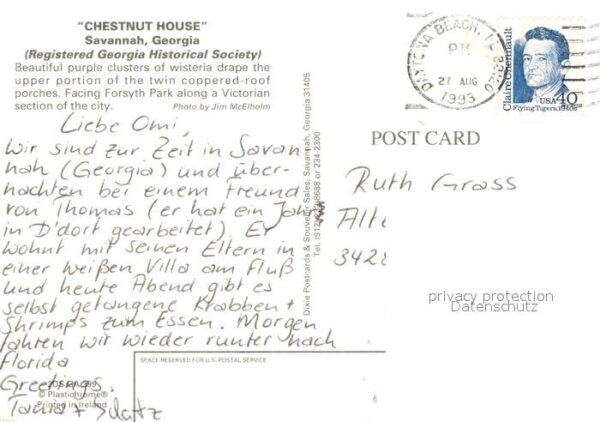 "CHESTNUT HOUSE"
Savannah, Georgia
(Registered Georgia Historical Society)
Beautiful purple clusters of wisteria drape the
upper portion of the twin coppered-roof
porches. Facing Forsyth Park along a Victorian
section of the city.
Photo by Jim McElholm
Liebe Omi,
wir sind zur Zeit in Savan-
nah (Georgia) und über-
nachten bei einem Freund
von Thomas (er hat ein Jahr
in D'dorf gearbeitet). Er
wohnt mit seinen Eltern in
einer weißen Villa am Fluß
und heute Abend gibt es
selbst gefangene Krabben +
Shrimps zum Essen. Morgen
fahren wir wieder runter nach
Florida
Greetings,
+
© Plastichrome®
Printed in Ireland
Dixie Postcards & Souvenir Sales, Savannah, Georgia 31405
Tel. (912) 8688 or 234-2300
SPACE RESERVED FOR U.S. POSTAL SERVICE
DAYTONA BEACH, FL
PM
27 AUG
1993
Claire Chennault
Flying Tigers, 1940s
USA 40
POST CARD
Ruth Grass
Alte
3428
privacy protection
Datenschutz